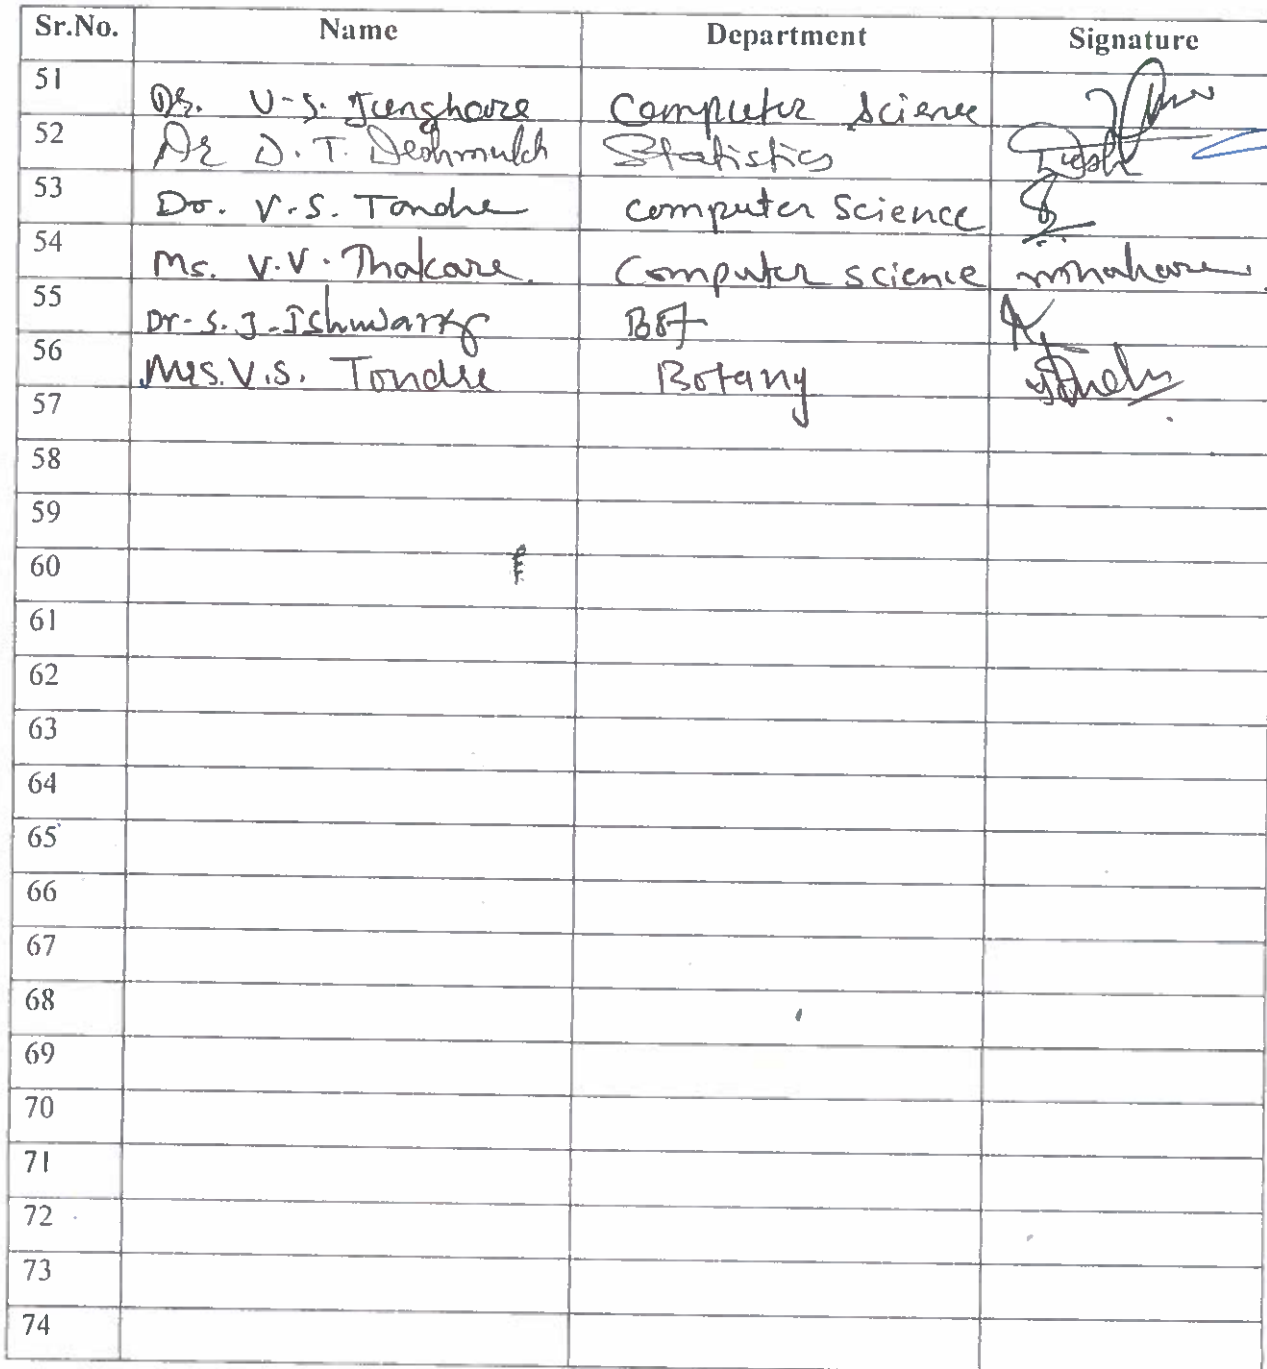 Sr.No. Name Department Signature
51 Dr. V.S. Junghare Computer Science
52 Dr D.T. Deshmukh Statistics
53 Dr. V.S. Tondre Computer Science
54 Ms. V.V. Thakare Computer science
55 Dr. S. J. Ishwarkar Bot
56 Mrs. V.S. Tondre Botany
57
58
59
60
61
62
63
64
65
66
67
68
69
70
71
72
73
74